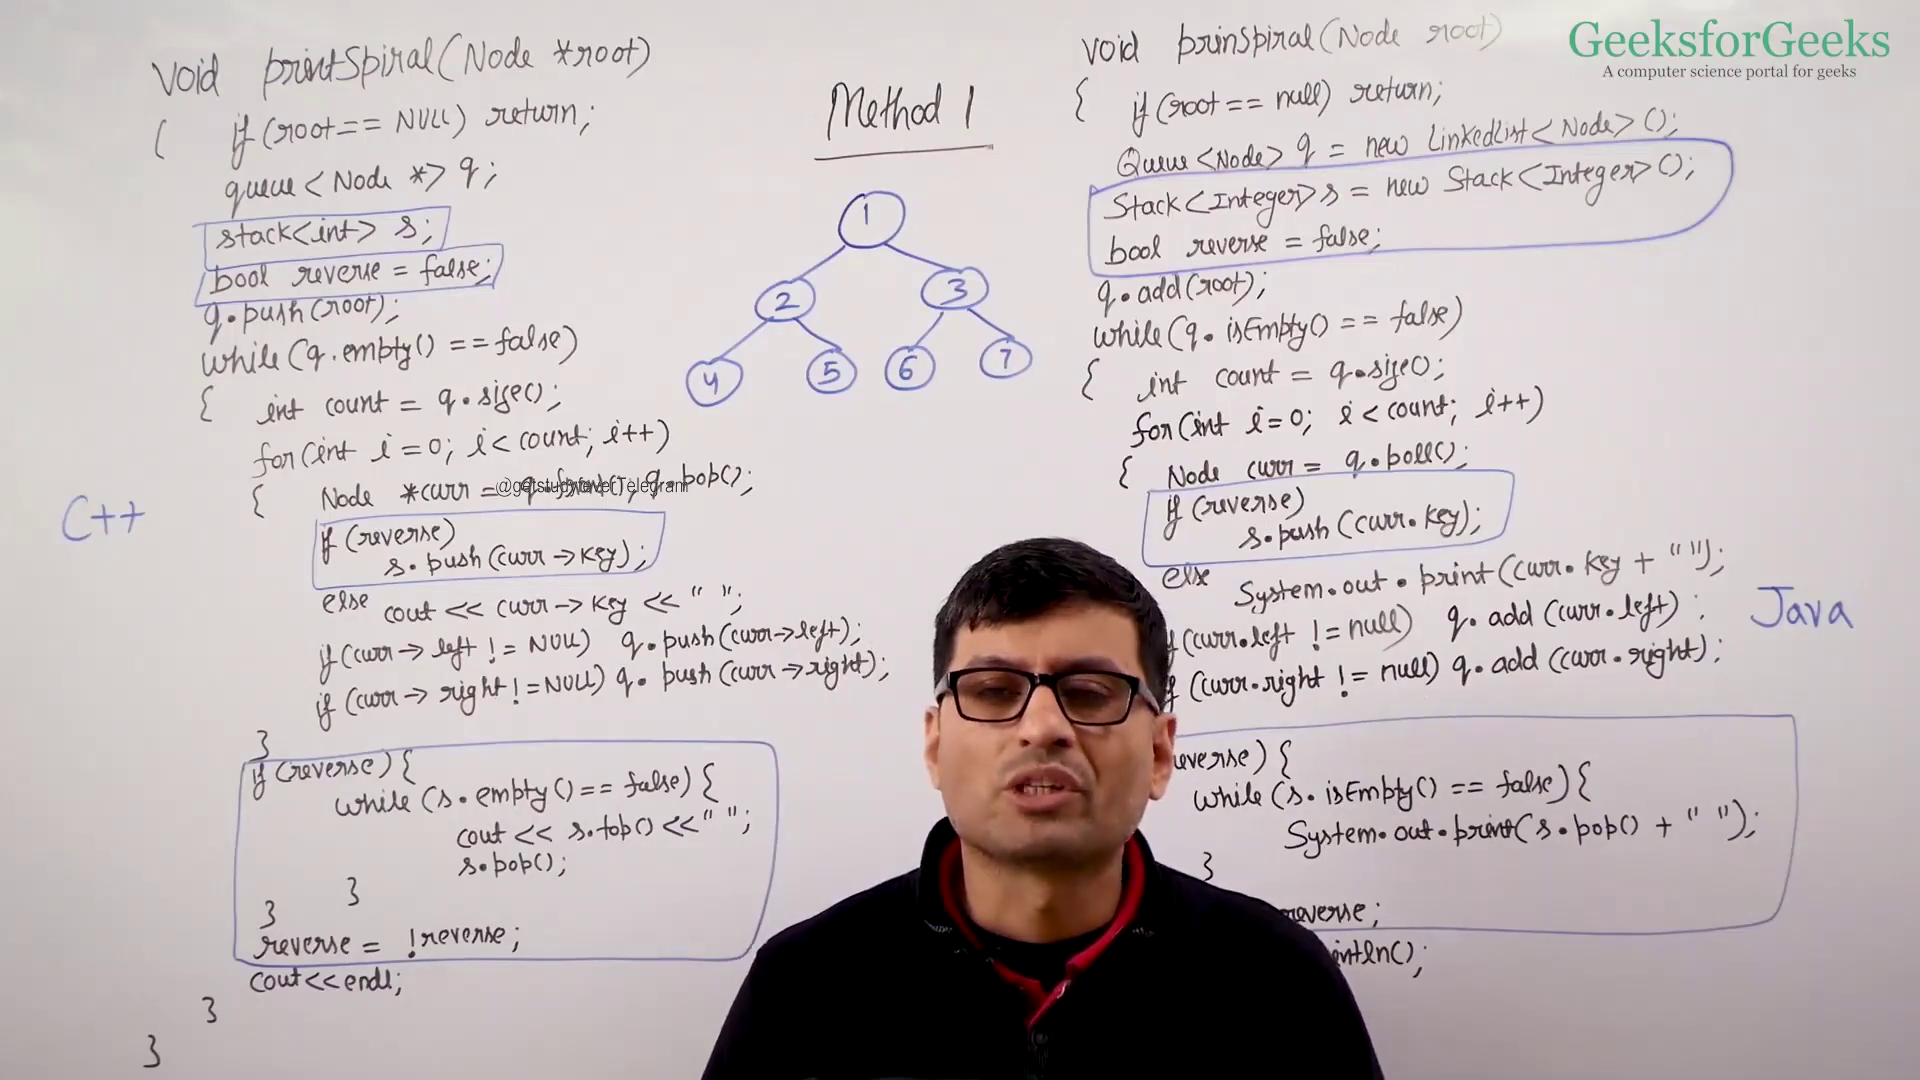 GeeksforGeeks
A computer science portal for geeks
void printSpiral(Node *root)
{ if(root == NULL) return;
queue<Node *> q;
stack<int> s;
bool reverse = false;
q.push(root);
while(q.empty() == false)
{ int count = q.size();
for(int i=0; i<count; i++)
{ Node *curr = q.front(); q.pop();
@getstudyfever(Telegram
if(reverse)
s.push(curr->key);
else cout << curr->key << " ";
if(curr->left != NULL) q.push(curr->left);
if(curr->right != NULL) q.push(curr->right);
}
if(reverse){
while(s.empty() == false){
cout << s.top() << " ";
s.pop();
}
}
reverse = !reverse;
cout<<endl;
}
}
C++
Method 1
1
2 3
4 5 6 7
void prinSpiral(Node root)
{ if(root == null) return;
Queue<Node> q = new LinkedList<Node>();
Stack<Integer> s = new Stack<Integer>();
bool reverse = false;
q.add(root);
while(q.isEmpty() == false)
{ int count = q.size();
for(int i=0; i<count; i++)
{ Node curr = q.poll();
if(reverse)
s.push(curr.key);
else System.out.print(curr.key + " ");
if(curr.left != null) q.add(curr.left);
if(curr.right != null) q.add(curr.right);
everse){
while(s.isEmpty() == false){
System.out.print(s.pop() + " ");
}
reverse;
intln();
Java